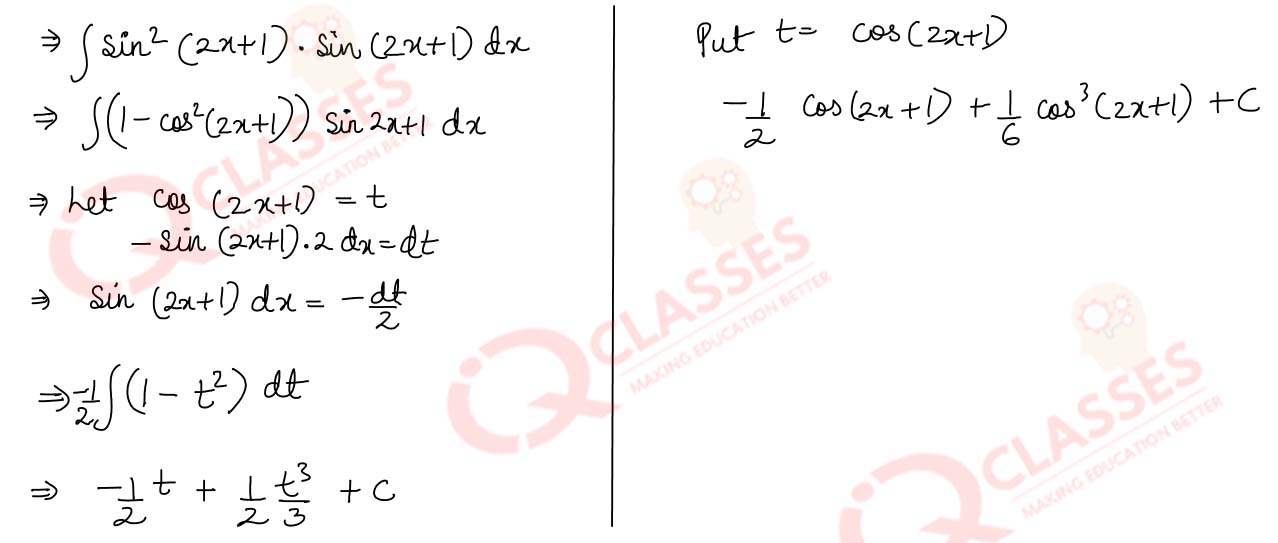 ⇒ ∫ sin² (2x+1) · sin (2x+1) dx
⇒ ∫(1 - cos²(2x+1)) sin 2x+1 dx
⇒ Let cos (2x+1) = t
- sin (2x+1).2 dx = dt
⇒ sin (2x+1) dx = - dt/2
⇒ -1/2 ∫(1 - t²) dt
⇒ -1/2 t + 1/2 t³/3 + C
Put t = cos(2x+1)
-1/2 cos(2x+1) + 1/6 cos³(2x+1) + C
IQ CLASSES
MAKING EDUCATION BETTER
IQ CLASSES
MAKING EDUCATION BETTER
IQ CLASSES
MAKING EDUCATION BETTER